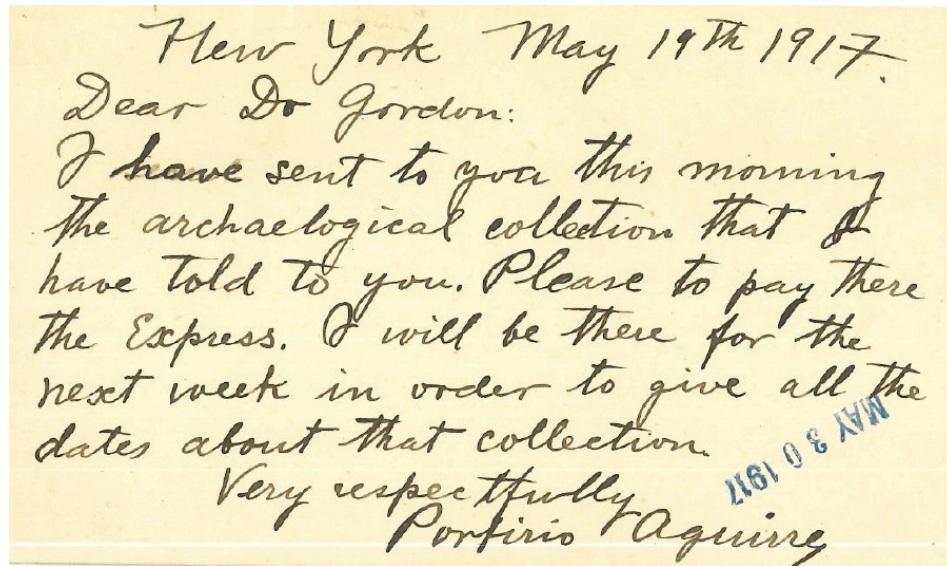 New York May 19th 1917.
Dear Dr Gordon:
I have sent to you this morning
the archaelogical collection that I
have told to you. Please to pay there
the Express. I will be there for the
next week in order to give all the
dates about that collection.
MAY 30 1917
Very respectfully
Porfirio Aguirre